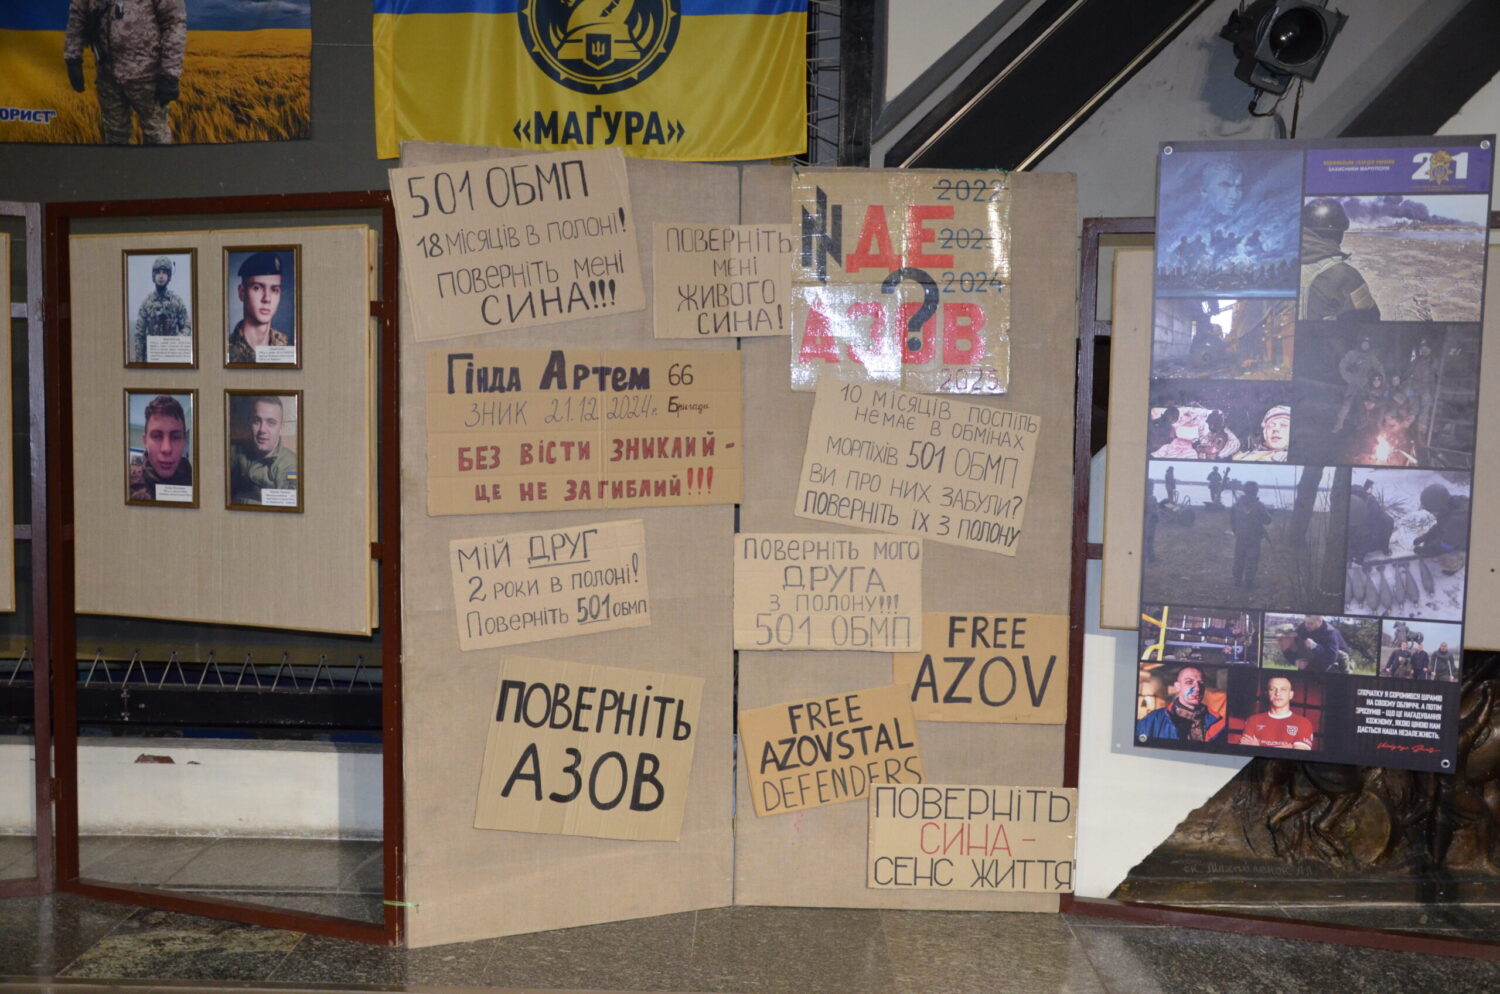 ОРИСТ
«МАҐУРА»
501 ОБМП
18 МІСЯЦІВ В ПОЛОНІ!
ПОВЕРНІТЬ МЕНІ
СИНА!!!
ПОВЕРНІТЬ
МЕНІ
ЖИВОГО
СИНА!
2022
ДЕ
2024
?
АЗОВ
2025
Гінда Артем 66
ЗНИК 21.12.2024р. Бригади
БЕЗ ВІСТИ ЗНИКЛИЙ -
ЦЕ НЕ ЗАГИБЛИЙ!!!
10 МІСЯЦІВ ПОСПІЛЬ
НЕМАЄ В ОБМІНАХ
МОРПІХІВ 501 ОБМП
ВИ ПРО НИХ ЗАБУЛИ?
ПОВЕРНІТЬ ЇХ З ПОЛОНУ
МІЙ ДРУГ
2 РОКИ В ПОЛОНІ!
Поверніть 501 ОБМП
ПОВЕРНІТЬ МОГО
ДРУГА
З ПОЛОНУ!!!
501 ОБМП
FREE
AZOV
ПОВЕРНІТЬ
АЗОВ
FREE
AZOVSTAL
DEFENDERS
ПОВЕРНІТЬ
СИНА -
СЕНС ЖИТТЯ
ЗАХИСНИКИ МАРІУПОЛЯ
201
СПОЧАТКУ Я СОРОМИВСЯ ШРАМІВ
НА СВОЄМУ ОБЛИЧЧІ, А ПОТІМ
ЗРОЗУМІВ - ЩО ЦЕ НАГАДУВАННЯ
КОЖНОМУ, ЯКОЮ ЦІНОЮ НАМ
ДАЄТЬСЯ НАША НЕЗАЛЕЖНІСТЬ.